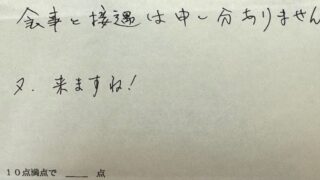 食事と接遇は申し分ありません
又、来ますね!
10点満点で ____ 点